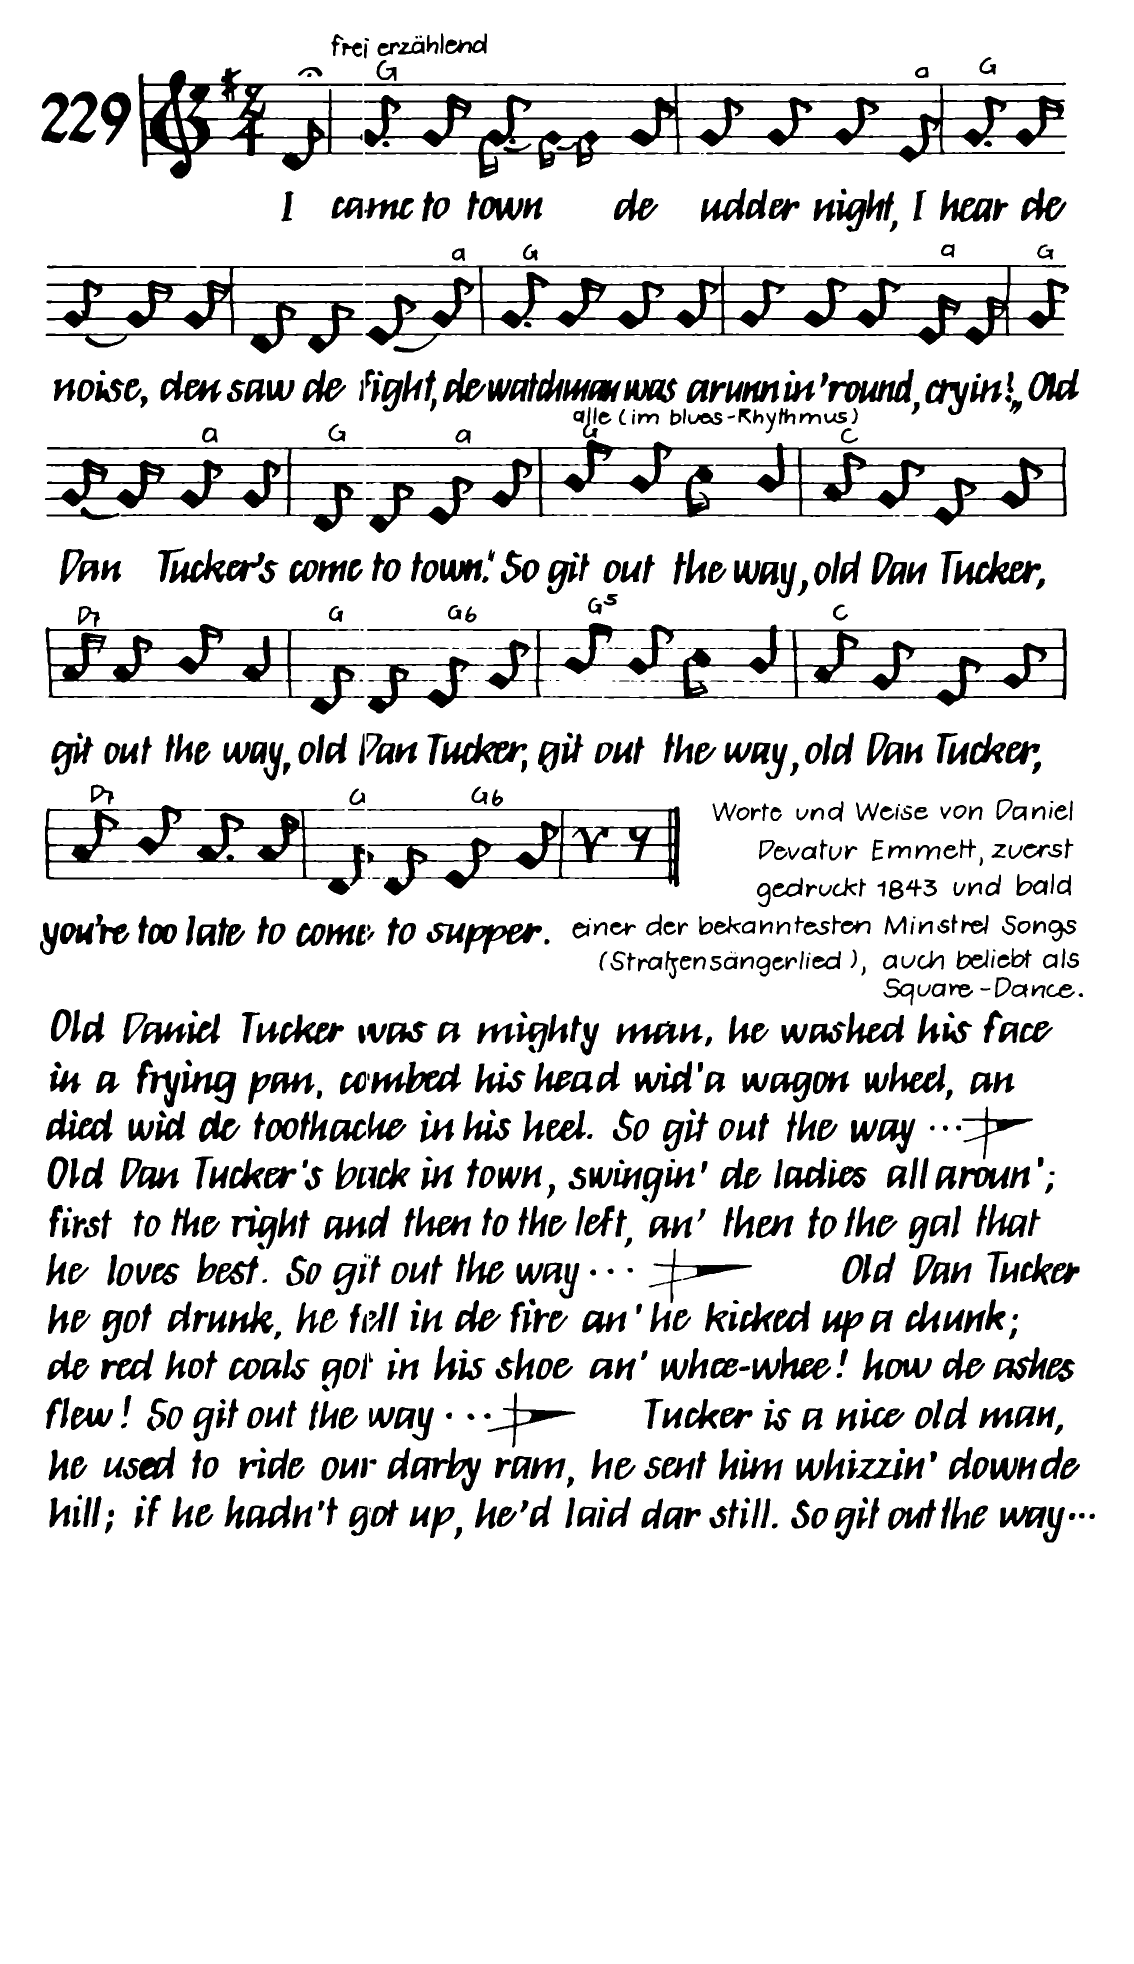 frei erzählend
G a G
229
2
4
I came to town de udder night, I hear de
a G a G
noise, den saw de fight, de watchman was a runnin' 'round, cryin': „Old
alle (im blues-Rhythmus)
a G a G C
Dan Tucker's come to town." So git out the way, old Dan Tucker,
D7 G G6 G5 C
git out the way, old Dan Tucker, git out the way, old Dan Tucker,
D7 G G6
Worte und Weise von Daniel
Devatur Emmett, zuerst
gedruckt 1843 und bald
you're too late to come to supper. einer der bekanntesten Minstrel Songs
(Straßensängerlied), auch beliebt als
Square-Dance.
Old Daniel Tucker was a mighty man, he washed his face
in a frying pan, combed his head wid'a wagon wheel, an
died wid de toothache in his heel. So git out the way ...
Old Dan Tucker's back in town, swingin' de ladies all aroun';
first to the right and then to the left, an' then to the gal that
he loves best. So git out the way ... Old Dan Tucker
he got drunk, he fell in de fire an' he kicked up a chunk;
de red hot coals got in his shoe an' whee-whee! how de ashes
flew! So git out the way ... Tucker is a nice old man,
he used to ride our darby ram, he sent him whizzin' down de
hill; if he hadn't got up, he'd laid dar still. So git out the way ...